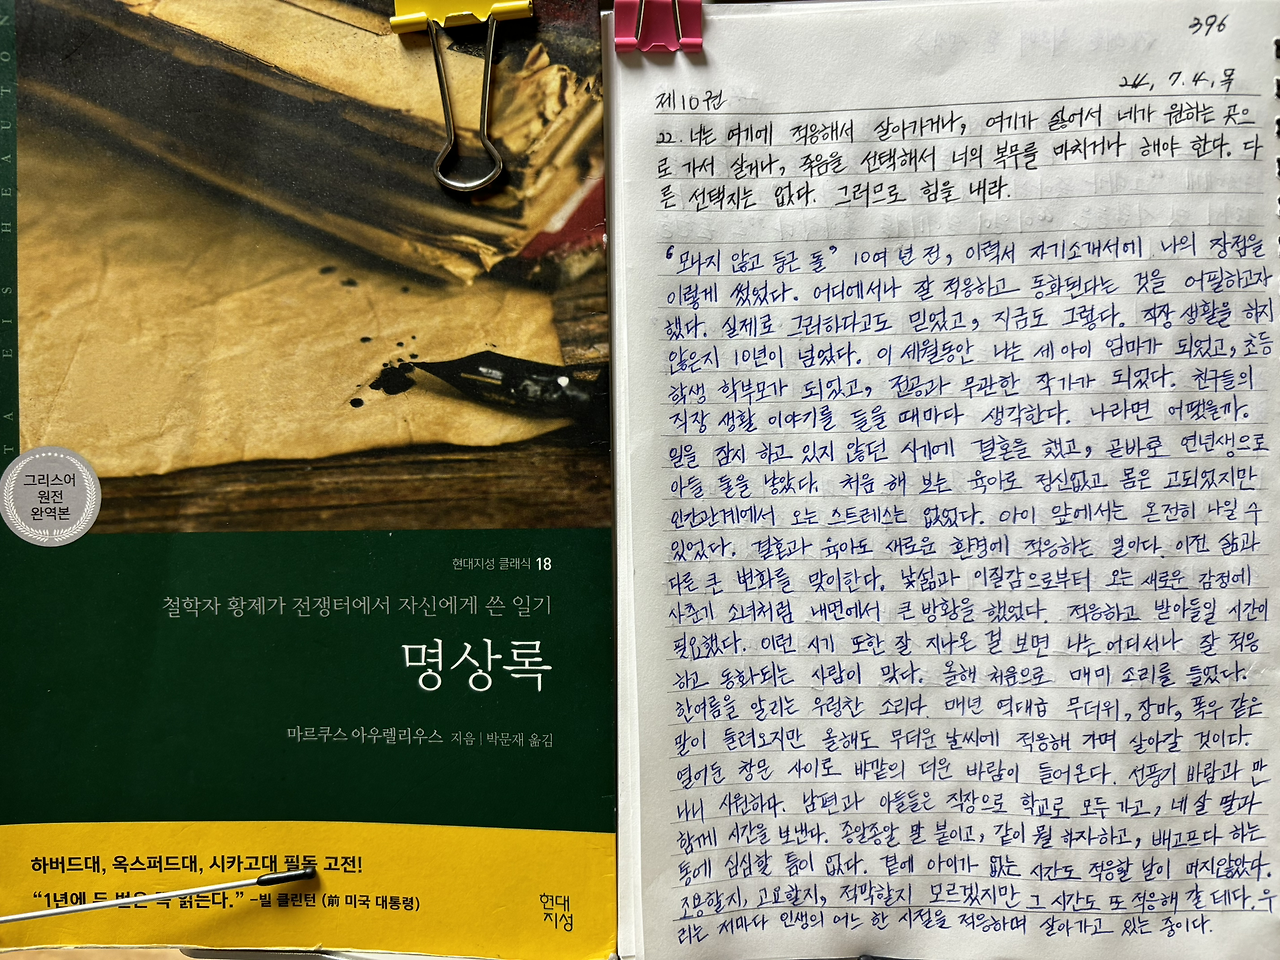 TA EIS HEAUTON
그리스어
원전
완역본
현대지성 클래식 18
철학자 황제가 전쟁터에서 자신에게 쓴 일기
명상록
마르쿠스 아우렐리우스 지음 | 박문재 옮김
하버드대, 옥스퍼드대, 시카고대 필독 고전!
“1년에 두 번은 꼭 읽는다.” –빌 클린턴 (前 미국 대통령)
현대
지성
396
24, 7.4, 목
제10권
22. 너는 여기에 적응해서 살아가거나, 여기가 싫어서 네가 원하는 곳으
로 가서 살거나, 죽음을 선택해서 너의 복무를 마치거나 해야 한다. 다
른 선택지는 없다. 그러므로 힘을 내라.
“모나지 않고 둥근 돌” 10여 년 전, 이력서 자기소개서에 나의 장점을
이렇게 썼었다. 어디에서나 잘 적응하고 동화된다는 것을 어필하고자
했다. 실제로 그러하다고도 믿었고, 지금도 그렇다. 직장 생활을 하지
않은지 10년이 넘었다. 이 세월동안 나는 세 아이 엄마가 되었고, 초등
학생 학부모가 되었고, 전공과 무관한 작가가 되었다. 친구들의
직장 생활 이야기를 들을 때마다 생각한다. 나라면 어땠을까.
일을 잠시 하고 있지 않던 시기에 결혼을 했고, 곧바로 연년생으로
아들 둘을 낳았다. 처음 해 보는 육아로 정신없고 몸은 고되었지만
인간관계에서 오는 스트레스는 없었다. 아이 앞에서는 온전히 나일 수
있었다. 결혼과 육아도 새로운 환경에 적응하는 일이다. 이전 삶과
다른 큰 변화를 맞이한다. 낯섦과 이질감으로부터 오는 새로운 감정에
사춘기 소녀처럼 내면에서 큰 방황을 했었다. 적응하고 받아들일 시간이
필요했다. 이런 시기 또한 잘 지나온 걸 보면 나는 어디서나 잘 적응
하고 동화되는 사람이 맞다. 올해 처음으로 매미 소리를 들었다.
한여름을 알리는 우렁찬 소리다. 매년 역대급 무더위, 장마, 폭우 같은
말이 들려오지만 올해도 무더운 날씨에 적응해 가며 살아갈 것이다.
열어둔 창문 사이로 바깥의 더운 바람이 들어온다. 선풍기 바람과 만
나니 시원하다. 남편과 아들들은 직장으로 학교로 모두 가고, 네 살 딸과
함께 시간을 보낸다. 종알종알 말 붙이고, 같이 뭘 하자하고, 배고프다 하는
통에 심심할 틈이 없다. 곁에 아이가 없는 시간도 적응할 날이 머지않았다.
조용할지, 고요할지, 적막할지 모르겠지만 그 시간도 또 적응해 갈 테다. 우
리는 저마다 인생의 어느 한 시절을 적응하며 살아가고 있는 중이다.